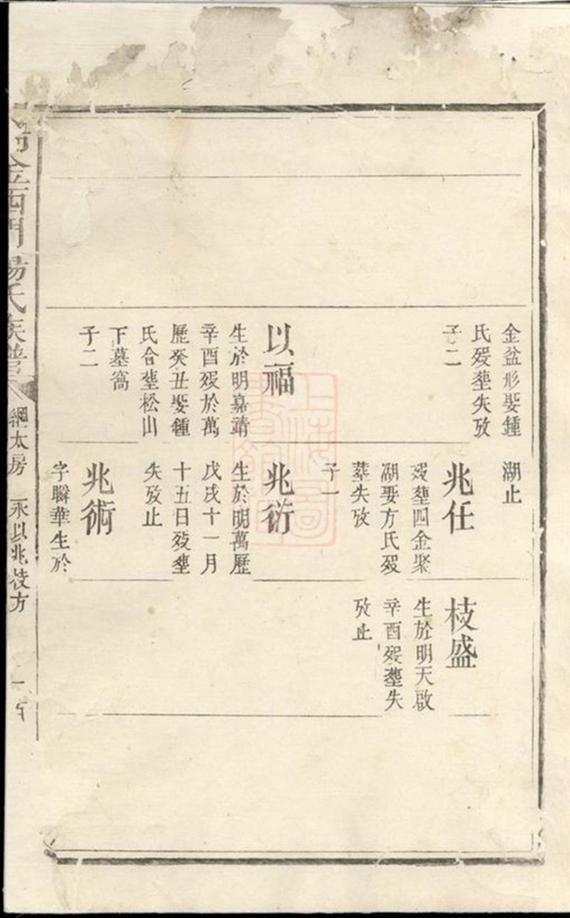 金盆形娶鍾
氏歿塟失攷
子二
以福
生於明嘉靖
辛酉歿於萬
歷癸丑娶鍾
氏合塟松山
下墓窩
子二
湖止
兆任
歿塟四金聚
湖娶方氏歿
塟失攷
子一
兆衍
生於明萬歷
戊戌十一月
十五日歿塟
失攷止
兆術
字聯華生於
枝盛
生於明天啟
辛酉歿塟失
攷止
金西門楊氏族譜
綱太房
永以兆枝方